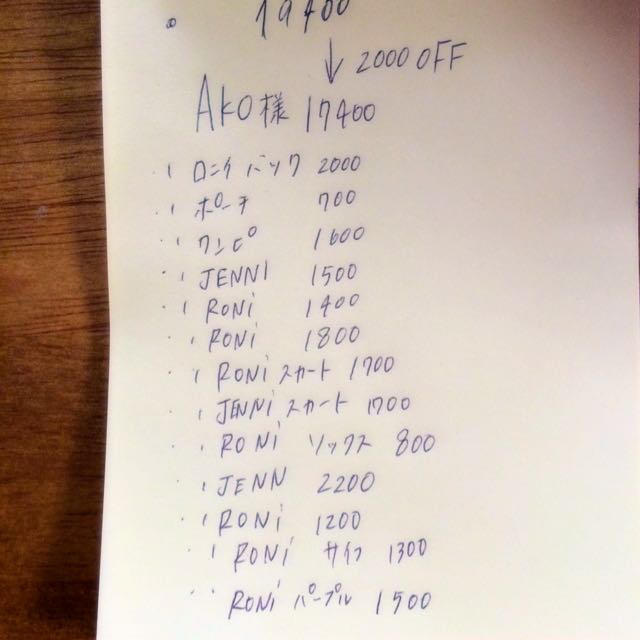 19400
↓ 2000 OFF
AKO様 17400
ロニケバック 2000
ポーチ 700
ワンピ 1600
JENNI 1500
RONi 1400
RONi 1800
RONi スカート 1700
JENNi スカート 1700
RONi ソックス 800
JENN 2200
RONi 1200
RONi サイフ 1300
RONi パープル 1500